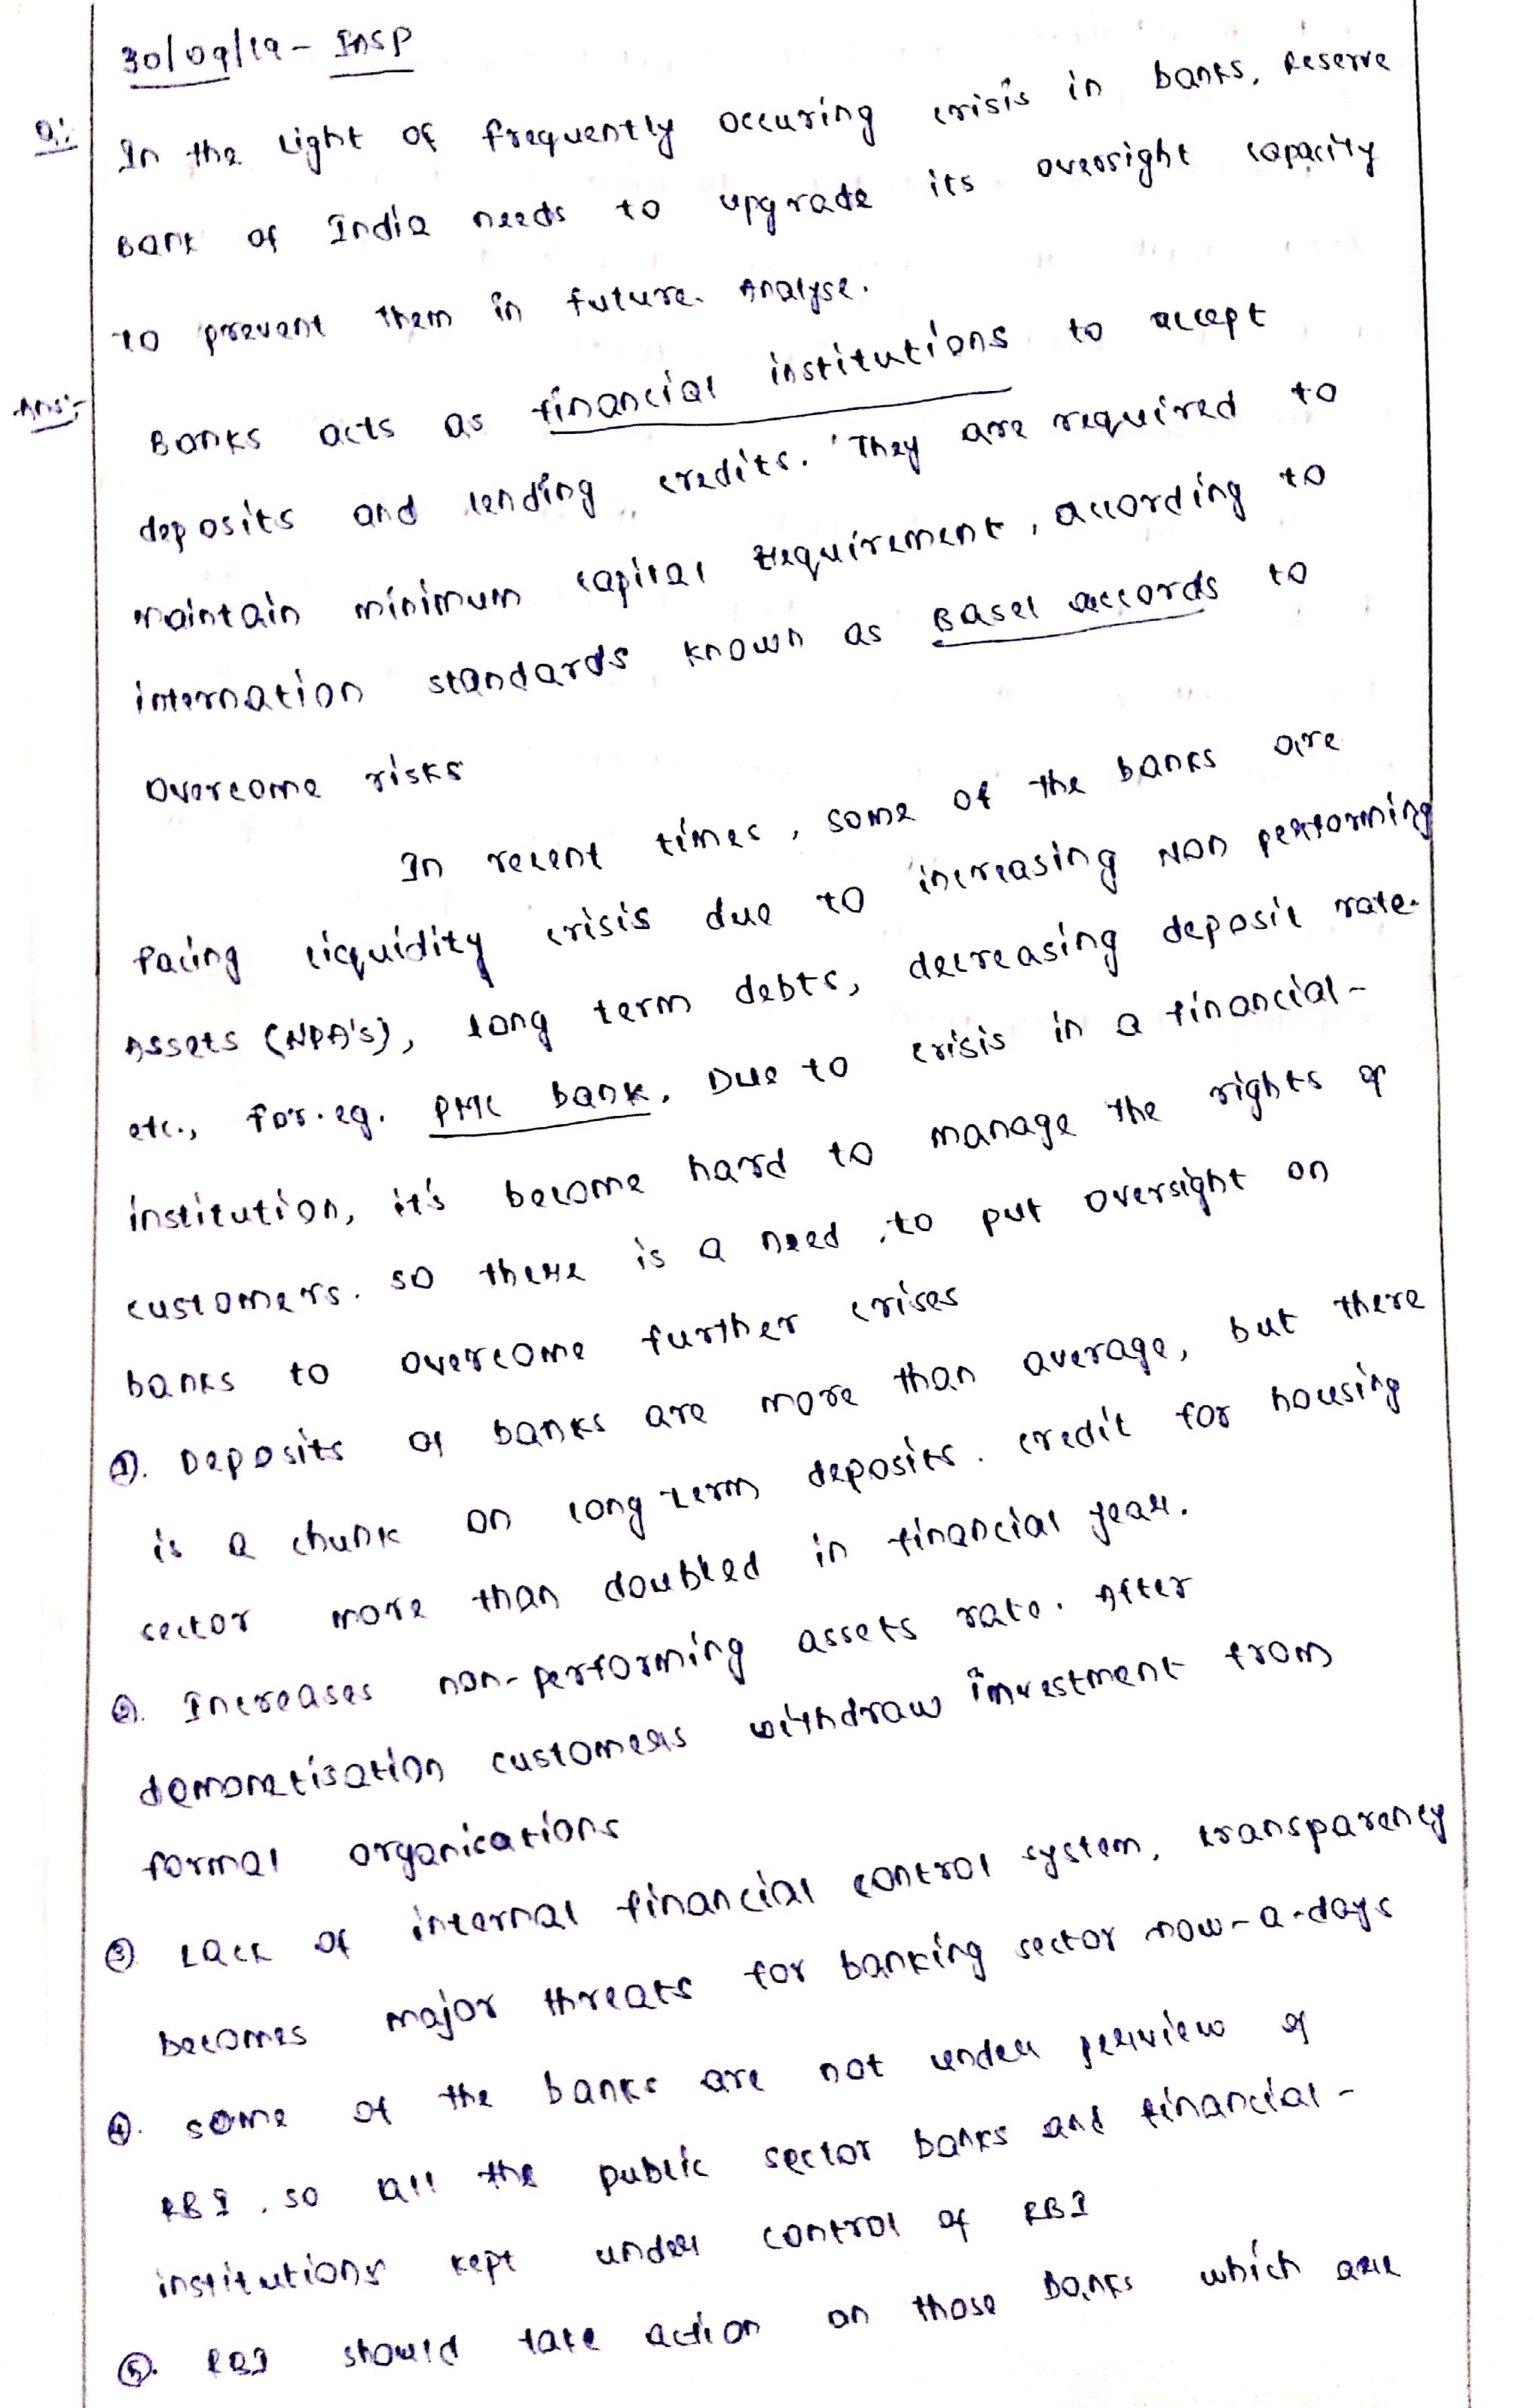 30/09/19 - INSP
Q:- In the light of frequently occuring crisis in banks, Reserve
Bank of India needs to upgrade its oversight capacity
to prevent them in future. Analyse.
Ans:- Banks acts as financial institutions to accept
deposits and lending credits. They are required to
maintain minimum capital requirement, according to
internation standards known as Basel accords to
overcome risks
In recent times, some of the banks are
facing licquidity crisis due to increasing Non performing
Assets (NPA's), long term debts, decreasing deposit rate
etc., for.eg. PMC bank. Due to crisis in a financial-
institution, it's become hard to manage the rights of
customers. so there is a need to put oversight on
banks to overcome further crises
①. Deposits of banks are more than average, but there
is a chunk on long term deposits. credit for housing
sector more than doubled in financial year.
②. Increases non-performing assets rate. After
demonetisation customers withdraw investment from
formal organisations
③ Lack of internal financial control system, transparency
becomes major threats for banking sector now-a-days
④. some of the banks are not under perview of
RBI, so all the public sector banks and financial-
institutions kept under control of RBI
⑤. RBI should take action on those banks which are